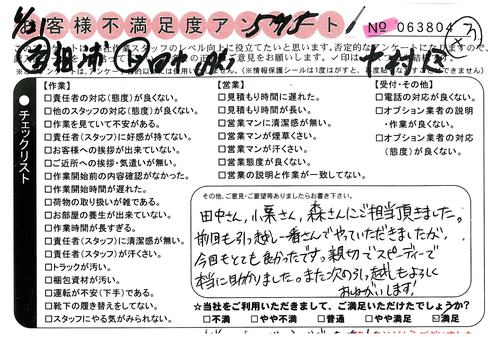 お客様不満足度アンケート
No 063804
このアンケートは弊社作業スタッフのレベル向上に役立てたいと思います。否定的なアンケートになりますので、
チェックリスト
【作業】
□責任者の対応(態度)が良くない。
□他のスタッフの対応(態度)が良くない。
□作業を見ていて不安がある。
□責任者(スタッフ)に好感が持てない。
□お客様への挨拶が出来ていない。
□ご近所への挨拶・気遣いが無い。
□作業開始前の内容確認がなかった。
□作業開始時間が遅れた。
□荷物の取り扱いが雑である。
□お部屋の養生が出来ていない。
□作業時間が長すぎる。
□責任者(スタッフ)に清潔感が無い。
□責任者(スタッフ)が汗くさい。
□トラックが汚い。
□梱包資材が汚い。
□運転が不安(下手)である。
□靴下の履き替えをしてない。
□スタッフにやる気がみられない。
【営業】
□見積もり時間に遅れた。
□見積もり時間が長い。
□営業マンに清潔感が無い。
□営業マンが煙草くさい。
□営業マンが汗くさい。
□営業態度が良くない。
□営業の説明と作業が一致してない。
【受付・その他】
□電話の対応が良くない。
□オプション業者の説明
・作業が良くない。
□オプション業者の対応
(態度)が良くない。
その他、ご意見・ご要望等ありましたらお書き下さい。
田中さん,小栗さん,森さんにご担当頂きました。
前回も引っ越し一番さんでやっていただきましたが、
今回もとても良かったです。親切でスピーディーで
本当に助かりました。また次の引っ越しもよろしく
おねがいします!
☆当社をご利用いただきまして、ご満足いただけたでしょうか?
□不満 □やや不満 □普通 □やや満足 ☑満足